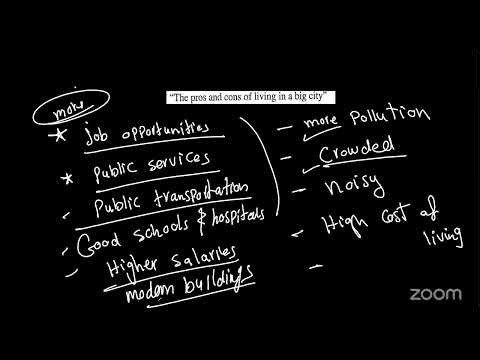 "The pros and cons of living in a big city"
more
* job opportunities
* Public services
- Public transportation
- Good schools & hospitals
- Higher salaries
modern buildings
- more pollution
- Crowded
- noisy
- High cost of
living
-
zoom